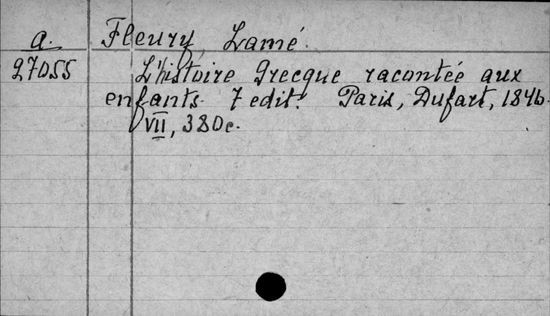 a. Fleury Lamé.
27055 L'histoire Grecque racontée aux
enfants. 7 edit. Paris, Dufart, 1846.
VII, 380c.